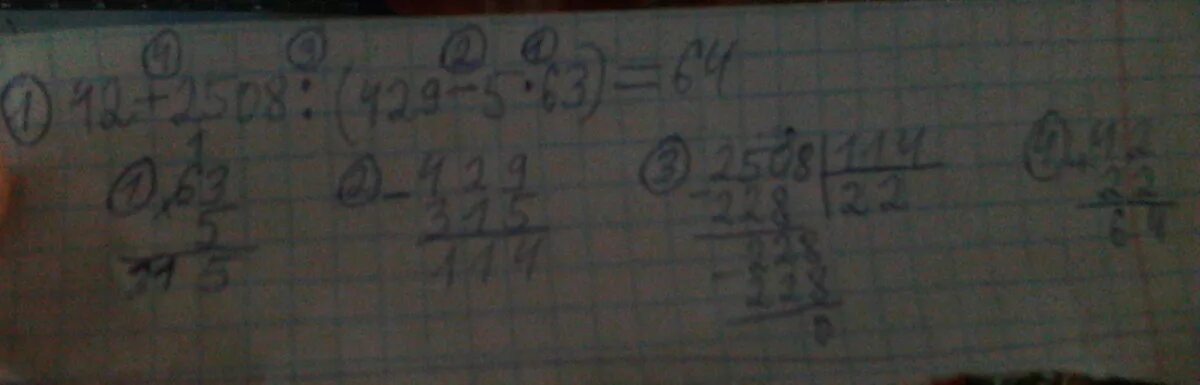 ④ ③ ② ①
① 42+2508:(429-5·63)=64
① ×63 ② -429 ③ 2508|114 ④ +42
1
5 315 -228 |22 22
315 114 228 64
-228
0